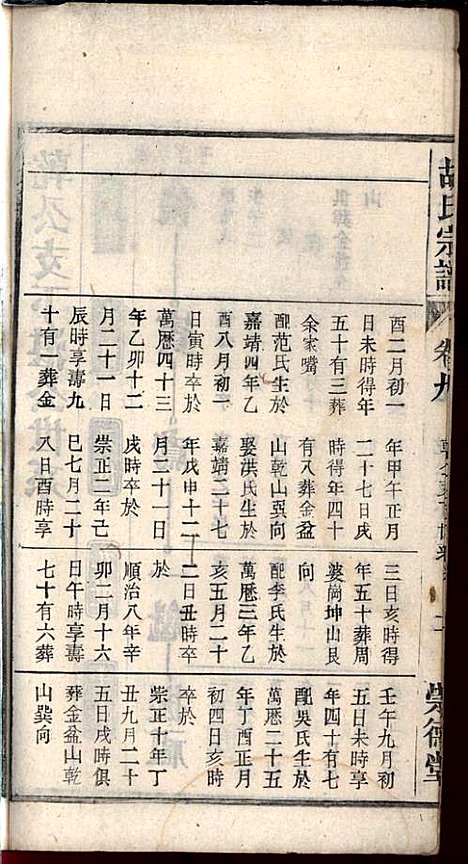 胡氏宗譜
卷九
二
崇德堂
酉二月初一
日未時得年
五十有三葬
余家嘴
配范氏生於
嘉靖四年乙
酉八月初一
日寅時卒於
萬曆四十三
年乙卯十二
月二十一日
辰時享壽九
十有一葬金
年甲午正月
二十七日戌
時得年四十
有八葬金盆
山乾山巽向
娶洪氏生於
嘉靖二十七
年戊申十二
月二十一日
戌時卒於
崇正二年己
巳七月二十
八日酉時享
三日亥時得
年五十葬周
婆崗坤山艮
向
配李氏生於
萬曆三年乙
亥五月二十
二日丑時卒
於
順治八年辛
卯二月十六
日午時享壽
七十有六葬
壬午九月初
五日未時享
年四十有七
配吳氏生於
萬曆二十五
年丁酉正月
初四日亥時
卒於
崇正十年丁
丑九月二十
五日戌時俱
葬金盆山乾
山巽向